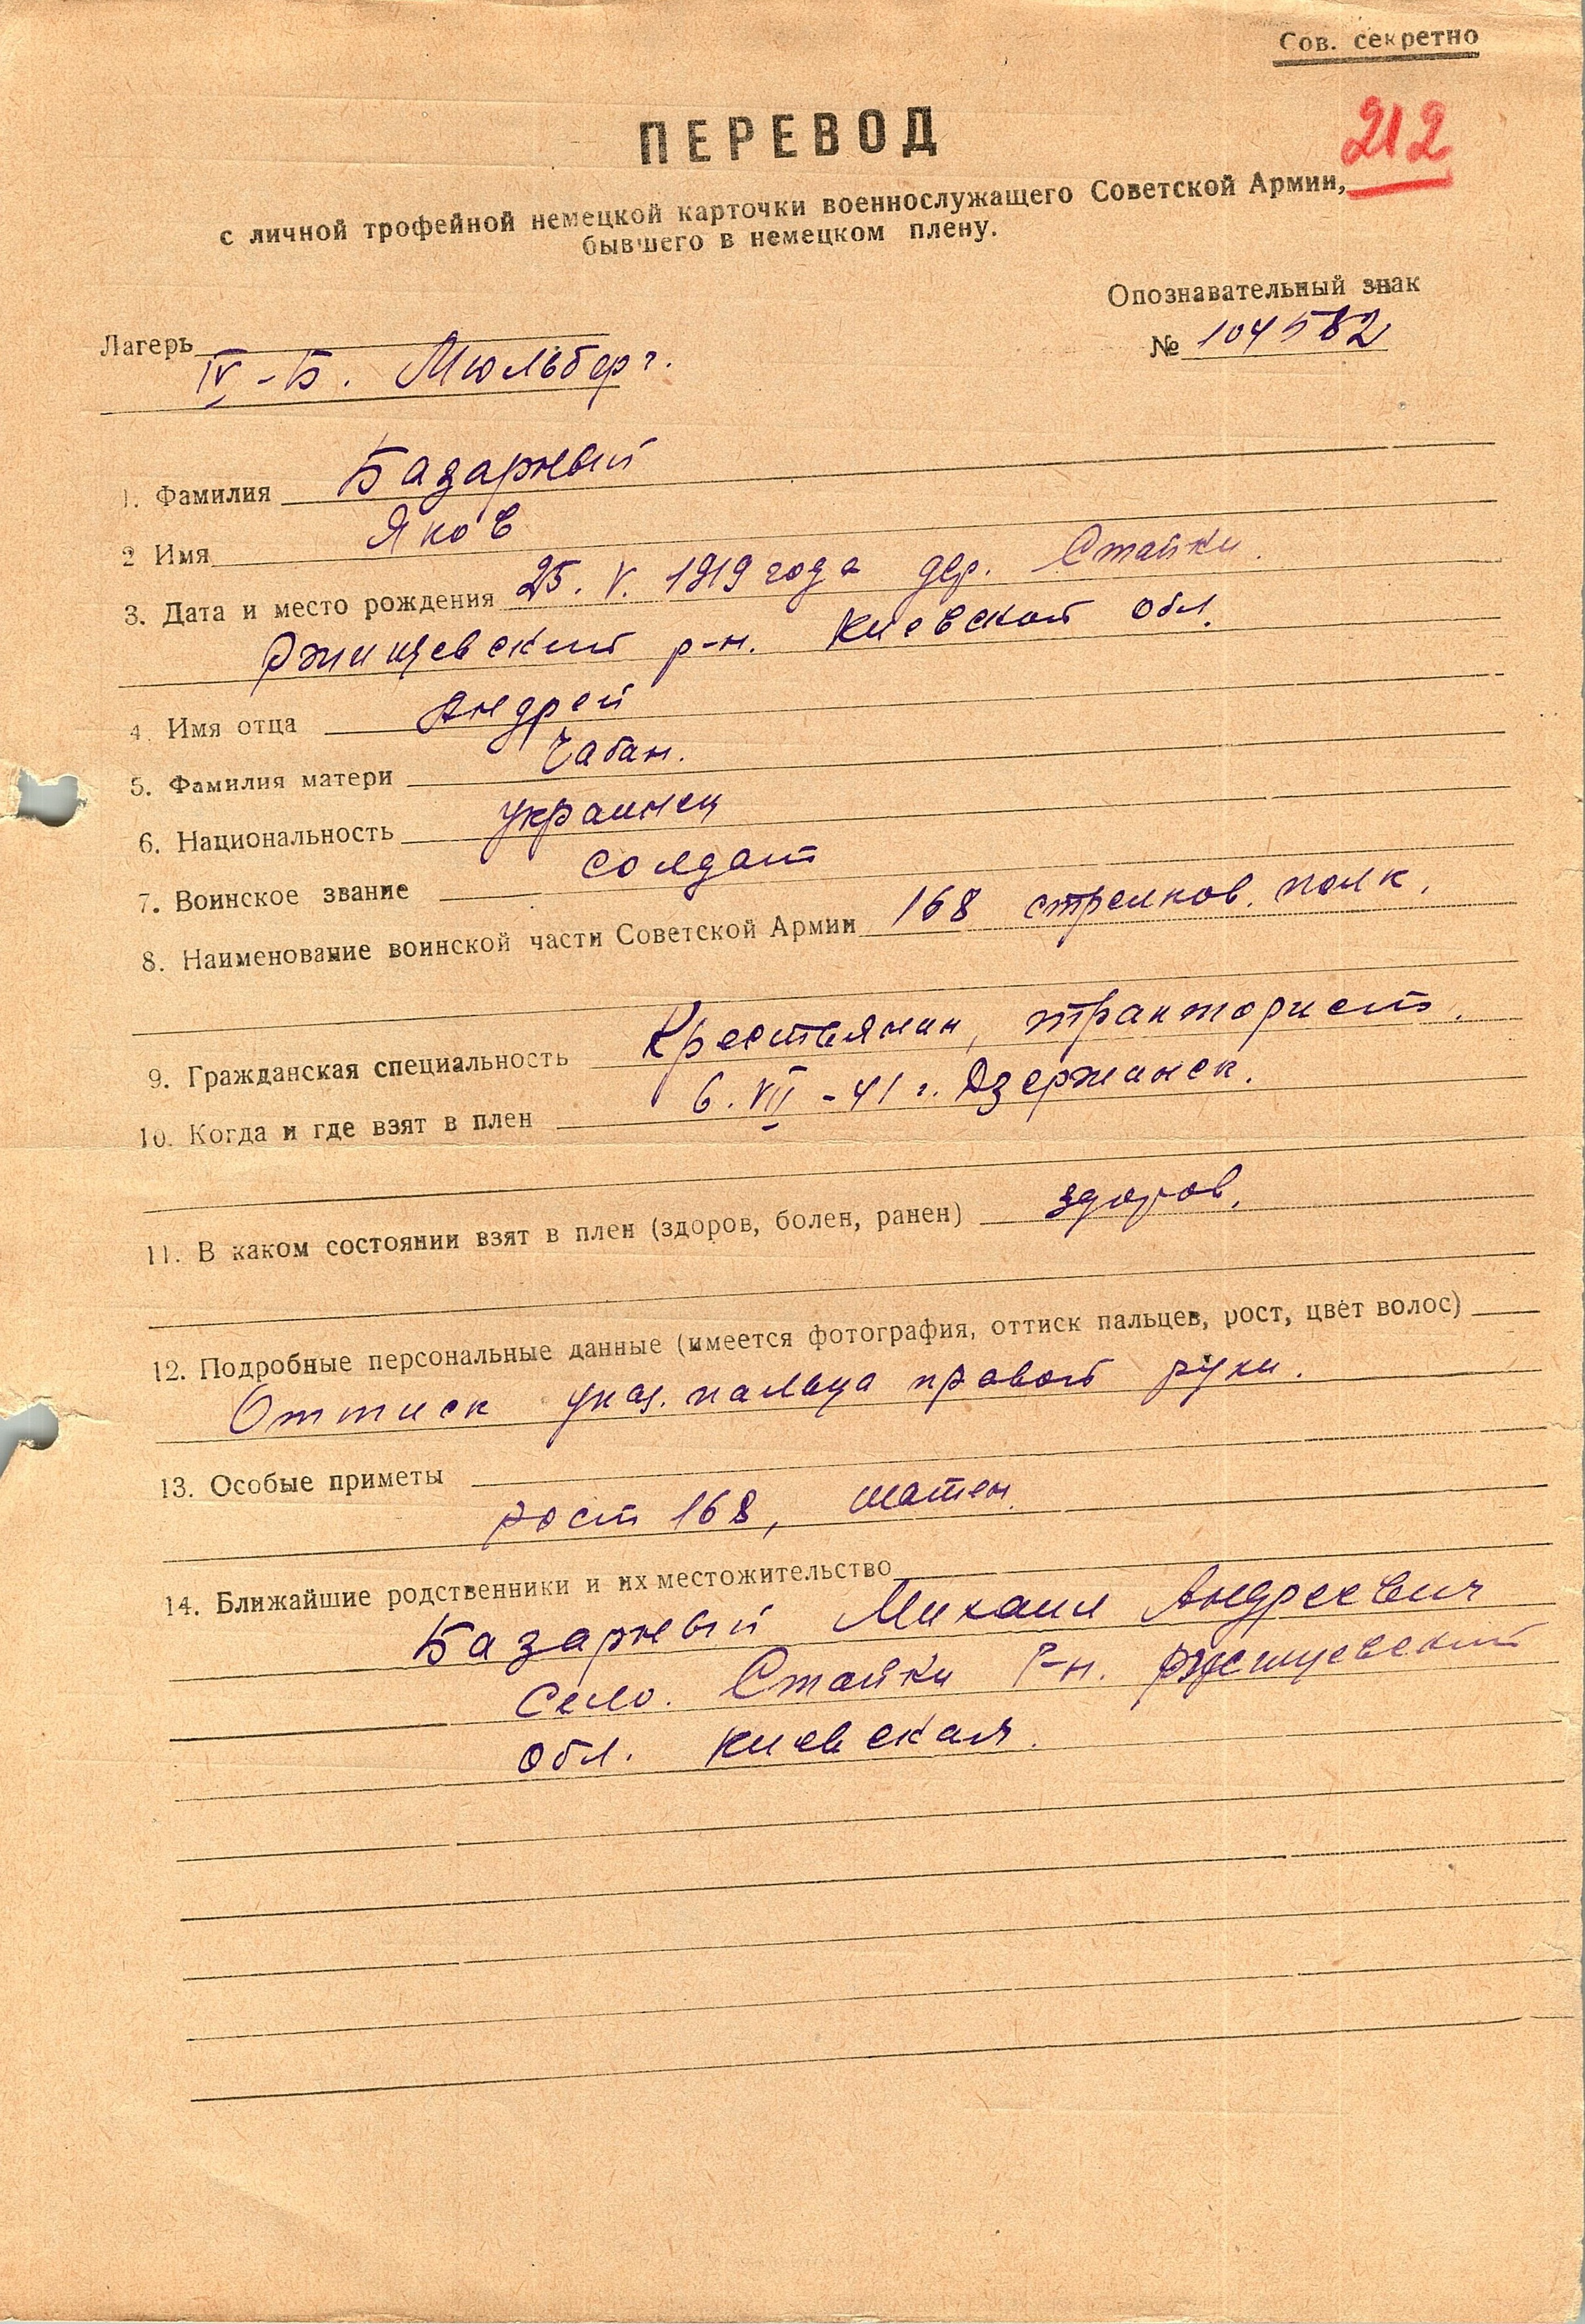 Сов. секретно
212
ПЕРЕВОД
с личной трофейной немецкой карточки военнослужащего Советской Армии,
бывшего в немецком плену.
Опознавательный знак
№ 104582
Лагерь
IV-Б. Мюльберг.
1. Фамилия Базарный
2 Имя Яков
3. Дата и место рождения 25. V. 1919 года дер. Стайки.
Ржищевский р-н. Киевской обл.
4. Имя отца Андрей
5. Фамилия матери Чабан.
6. Национальность украинец
7. Воинское звание солдат
8. Наименование воинской части Советской Армии 168 стрелков. полк.
9. Гражданская специальность Крестьянин, тракторист.
10. Когда и где взят в плен 6. VII - 41 г. Дзержинск.
11. В каком состоянии взят в плен (здоров, болен, ранен) здоров.
12. Подробные персональные данные (имеется фотография, оттиск пальцев, рост, цвет волос)
Оттиск указ. пальца правой руки.
13. Особые приметы
рост 168, шатен.
14. Ближайшие родственники и их местожительство
Базарный Михаил Андреевич
село. Стайки р-н. Ржищевский
обл. Киевская.